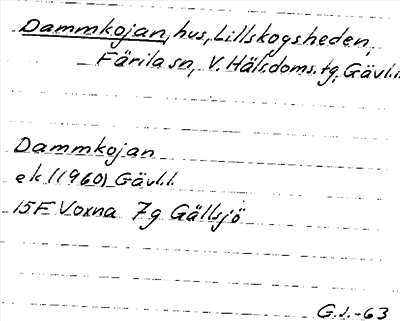 Dammkojan, hus, Lillskogsheden,
Färila sn, V. Häls. doms. tg, Gävl. l.
Dammkojan
ek (1960) Gävl. l.
15F Voxna 7g Gällsjö
G.J.-63